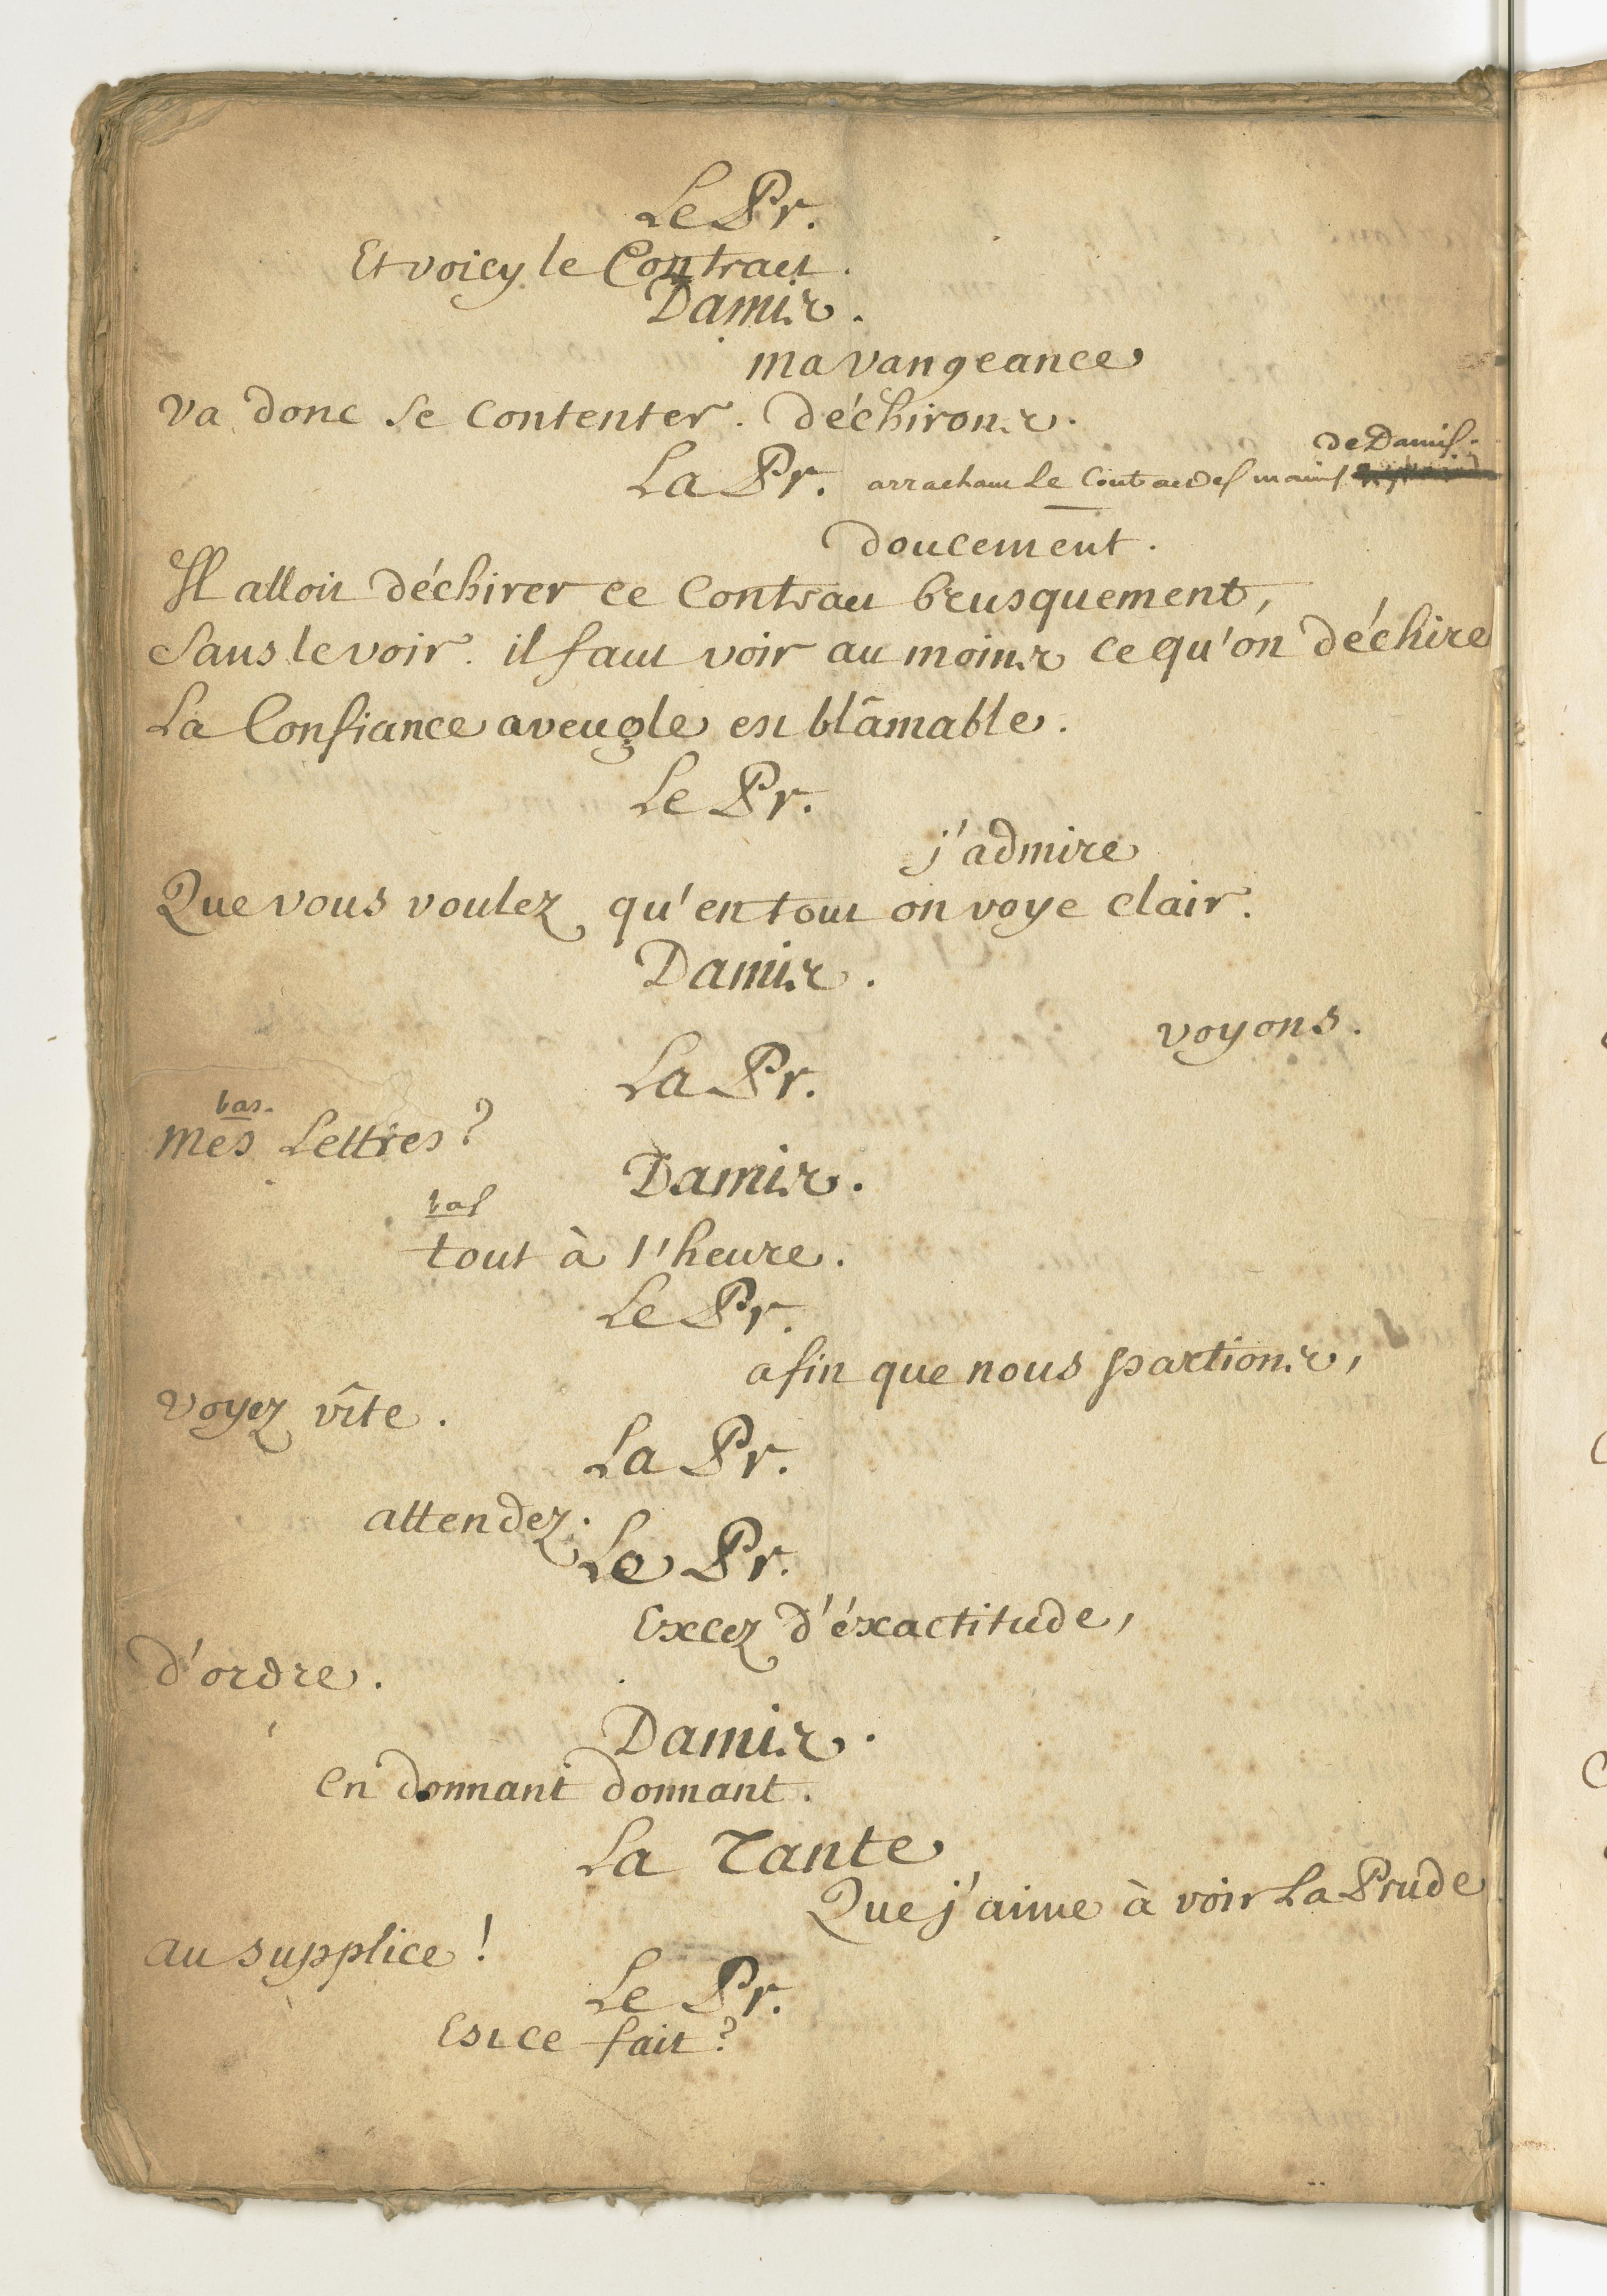 Le Pr.
Et voicy le Contract.
Damis.
ma vangeance
va donc se contenter. déchirons.
de Damis.
La Pr. arrachant le Contract des mains
doucement.
Il alloit déchirer ce Contract brusquement,
sans le voir. il faut voir au moins ce qu'on déchire
La Confiance aveugle est blâmable.
Le Pr.
j'admire
Que vous voulez qu'en tout on voye clair.
Damis.
voyons.
La Pr.
bas.
mes Lettres?
Damis.
bas
tout à l'heure.
Le Pr.
afin que nous partions,
voyez vîte.
La Pr.
attendez.
Le Pr.
Excez d'éxactitude,
d'ordre.
Damis.
en donnant donnant.
La Tante
Que j'aime à voir La Prude
au supplice!
Le Pr.
Est ce fait?